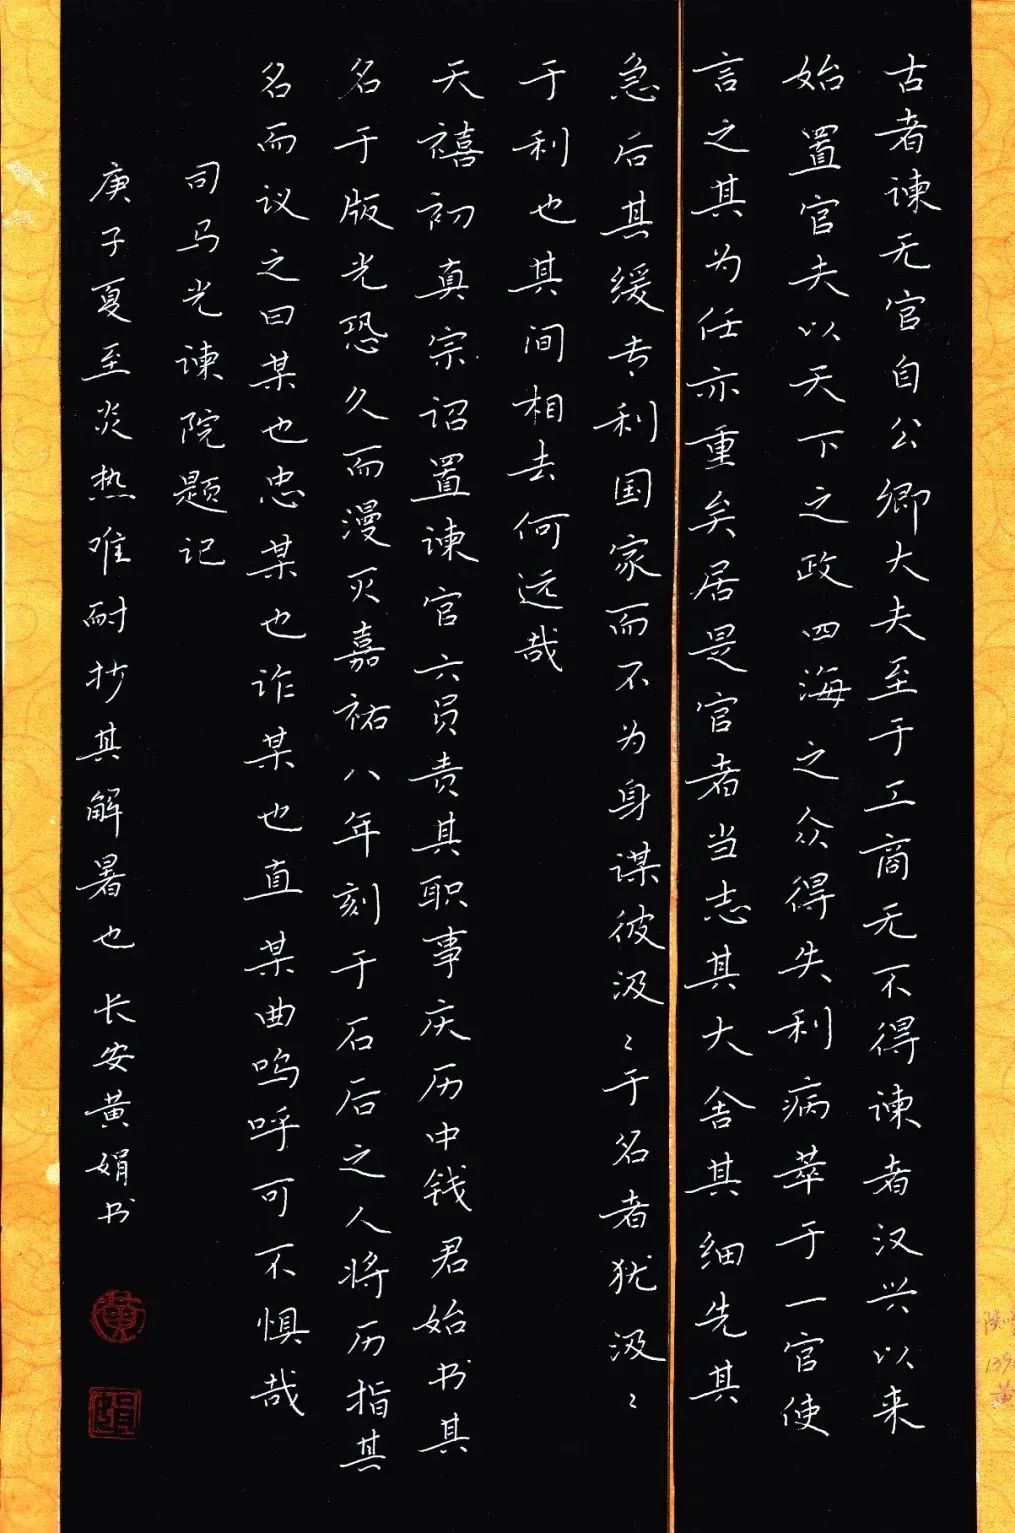 古者谏无官自公卿大夫至于工商无不得谏者汉兴以来
始置官夫以天下之政四海之众得失利病萃于一官使
言之其为任亦重矣居是官者当志其大舍其细先其
急后其缓专利国家而不为身谋彼汲〻于名者犹汲〻
于利也其间相去何远哉
天禧初真宗诏置谏官六员责其职事庆历中钱君始书其
名于版光恐久而漫灭嘉祐八年刻于石后之人将历指其
名而议之曰某也忠某也诈某也直某曲呜呼可不惧哉
司马光谏院题记
庚子夏至炎热难耐抄其解暑也 长安黄娟书
黄
娟
139